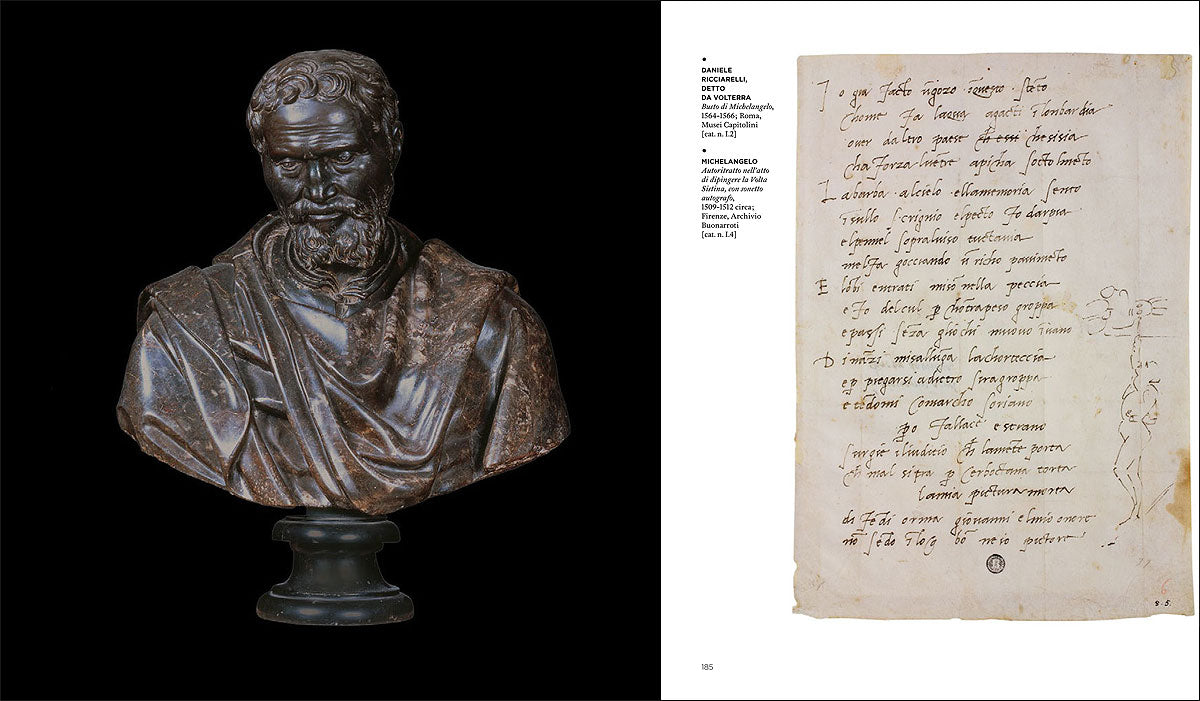 •
DANIELE
RICCIARELLI,
DETTO
DA VOLTERRA
Busto di Michelangelo,
1564-1566; Roma,
Musei Capitolini
[cat. n. I.2]
•
MICHELANGELO
Autoritratto nell'atto
di dipingere la Volta
Sistina, con sonetto
autografo,
1509-1512 circa;
Firenze, Archivio
Buonarroti
[cat. n. I.4]
185
I o gia facto ũgozo ĩquesto stẽto
chome fa laqua agacti ĩlonbardia
over daltro paese ch̃ essi chesisia
cha forza luẽtre apicha soctolmẽto
L abarba alcielo ellamemoria sento
ĩsullo scrignio elpecto fo darpia
elpennel sopraluiso tuctavia
melfa gocciando ũ richo pavimẽto
E lobi entrati misõ nella peccia
e fo delcul p chõtrapeso groppa
epassi sẽza gliochi muovo ĩvano
D inãzi misallũga lachorteccia
e p piegarsi adietro siragroppa
e tẽdomi comarcho soriano
po fallace e strano
surgie iliuditio ch̃ lamẽte porta
ch̃ mal sitra p cerboctana torta
lamia pictura morta
di fẽdi orma giovanni elmio onore
nõ sẽdo ĩlog bõ neio pictore
6
8·5.